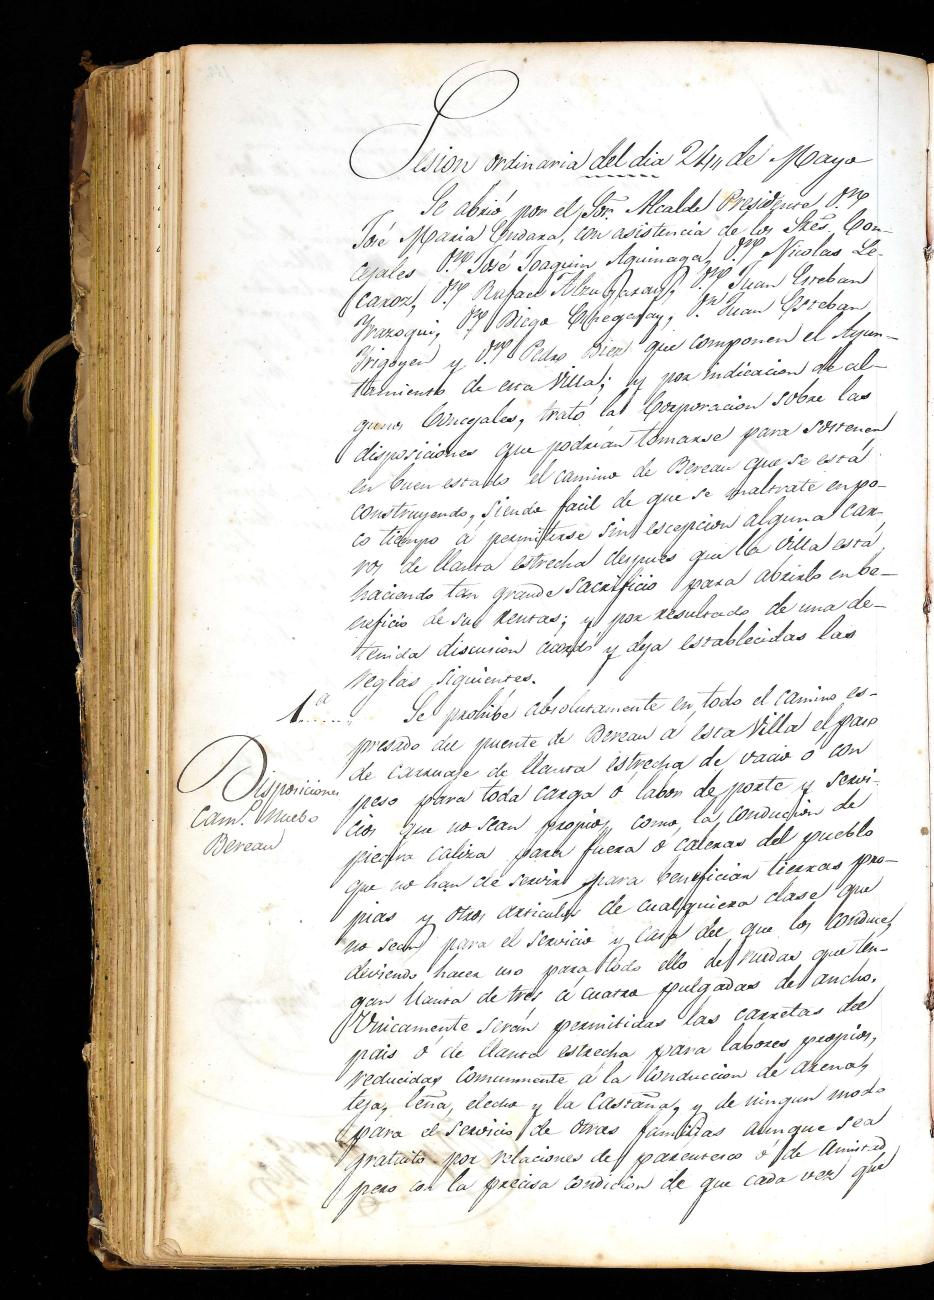 Sesion ordinaria del dia 24,, de Mayo
Se abrió por el Sor. Alcalde Presidente Dn
José Maria Yndaxa, con asistencia de los Sres. Con-
cejales Dn José Joaquin Aguinaga, Dn Nicolas Le-
caroz, Dn Rafael Alzugaray, Dn Juan Esteban
Yrazoqui, Dn Diego Echegaray, Dn Juan Esteban
Yrigoyen y Dn Pedro Biez que componen el Ayun-
tamiento de esta Villa; y por indicacion de al-
gunos Concejales, trató la Corporacion sobre las
disposiciones que podrian tomarse para sostener
en buen estado el camino de Bereau que se está
construyendo, siendo facil de que se maltrate en po-
co tiempo á permitirse sin escepcion alguna car-
ros de llanta estrecha despues que la Villa está
haciendo tan grande sacrificio para abrirlo en be-
neficio de sus rentas; y por resultado de una de-
tenida discusion acordó y deja establecidas las
reglas siguientes.
1a...... Se prohibe absolutamente en todo el camino es-
presado del puente de Bereau á esta Villa el paso
de carruaje de llanta estrecha de vacio ó con
Disposiciones
Camo. Nuebo
Bereau
peso para toda carga ó labor de porte y servi-
cios que no sean propios, como la conducion de
piedra caliza para fuera ó caleras del pueblo
que no han de servir para beneficiar tierras pro-
pias y otros articulos de cualquiera clase que
no sean para el servicio y casa del que los conduce,
deviendo hacer uso para todo ello de ruedas que ten-
gan llanta de tres á cuatro pulgadas de ancho.
Unicamente serán permitidas las carretas del
pais ó de llanta estrecha para labores propios,
reducidas comunmente á la conduccion de arena,
teja, leña, elecho y la Castaña, y de ningun modo
para el servicio de otras familias aunque sea
gratuito por relaciones de parentesco ó de amistad
pero con la precisa condicion de que cada vez que